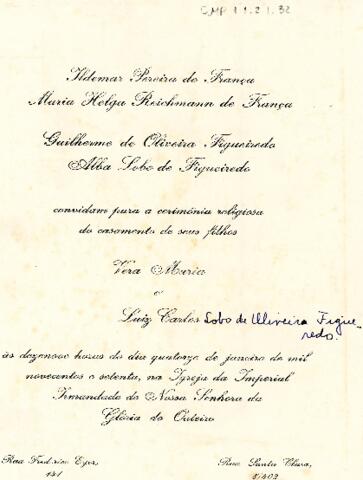 CMP 1 1.2 1.32
Ildemar Pereira de França
Maria Helga Reichmann de França
Guilherme de Oliveira Figueiredo
Alba Lobo de Figueiredo
convidam para a cerimônia religiosa
do casamento de seus filhos
Vera Maria
e
Luiz Carlos Lobo de Oliveira Figue-
redo.
às dezenove horas do dia quatorze de janeiro de mil
novecentos e setenta, na Igreja da Imperial
Irmandade de Nossa Senhora da
Glória do Outeiro
Rua Frederico Rua Santa Clara,